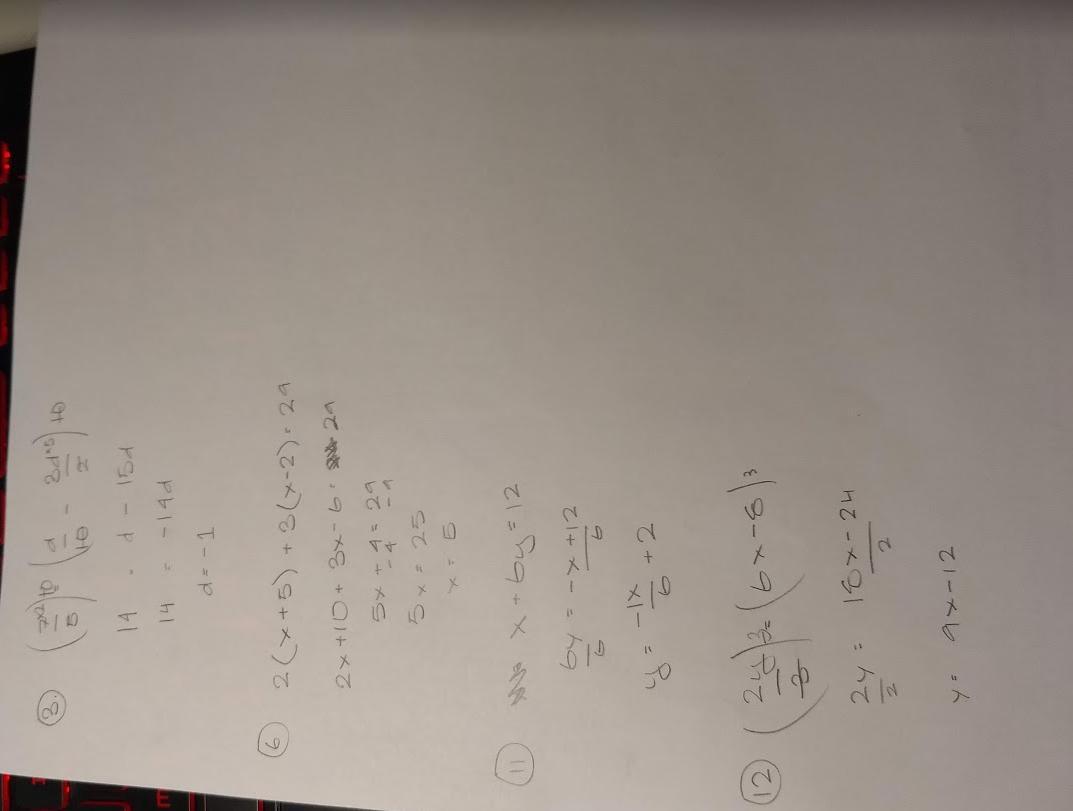 3. (7×2/5)10 = (d/10 - 3d×5/2)10
14 = d - 15d
14 = -14d
d = -1
6 2(x+5) + 3(x-2) = 29
2x + 10 + 3x - 6 = 29
5x + 4 = 29
-4 -4
5x = 25
x = 5
11 x + 6y = 12
6y/6 = -x+12/6
y = -1x/6 + 2
12 (2y/3)3 = (6x-8)3
2y/2 = 18x-24/2
y = 9x-12